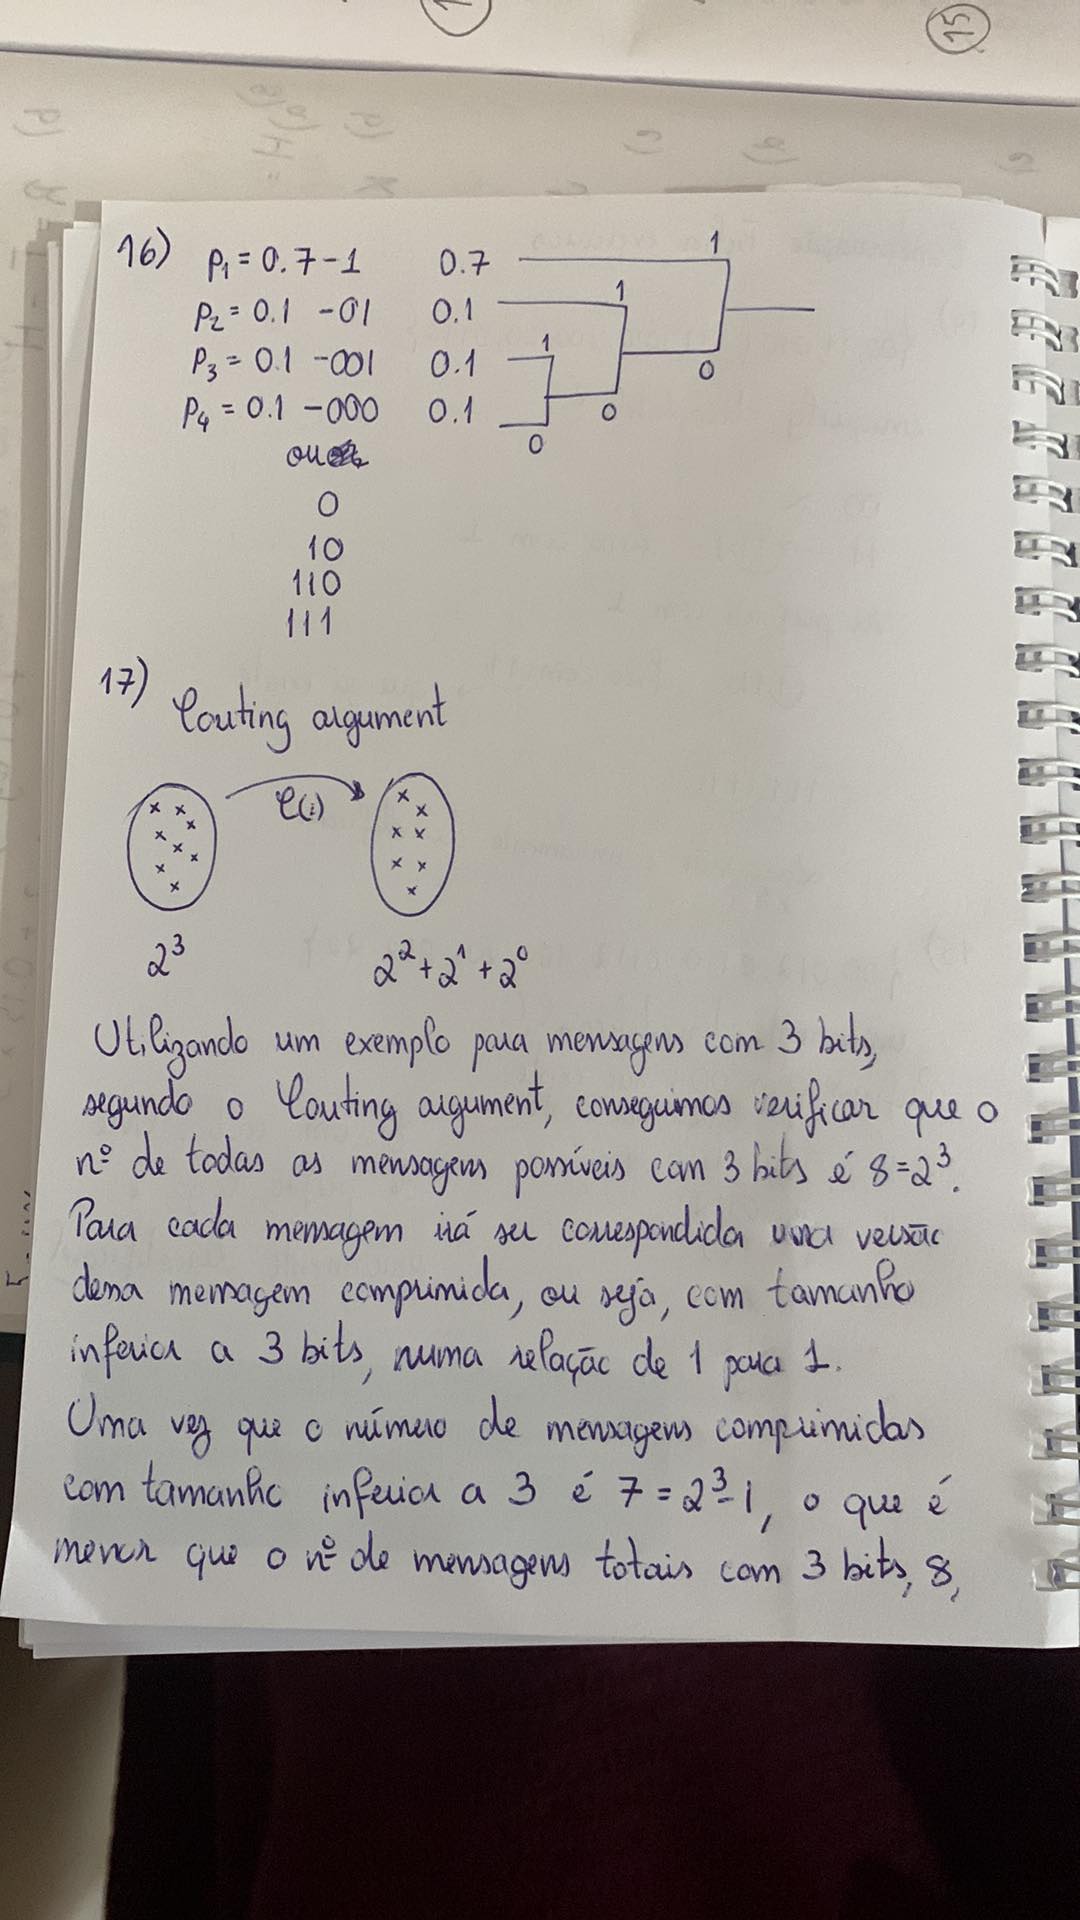 15
16) p₁ = 0.7 - 1 0.7 1
p₂ = 0.1 - 01 0.1 1
p₃ = 0.1 - 001 0.1 1 0
p₄ = 0.1 - 000 0.1 0 0
ou
0
10
110
111
17)
Couting argument
C(i)
2³ 2² + 2¹ + 2⁰
Utilizando um exemplo para mensagens com 3 bits,
segundo o Couting argument, conseguimos verificar que o
nº de todas as mensagens possíveis com 3 bits é 8 = 2³.
Para cada mensagem irá ser correspondida uma versão
dessa mensagem comprimida, ou seja, com tamanho
inferior a 3 bits, numa relação de 1 para 1.
Uma vez que o número de mensagens comprimidas
com tamanho inferior a 3 é 7 = 2³-1, o que é
menor que o nº de mensagens totais com 3 bits, 8,